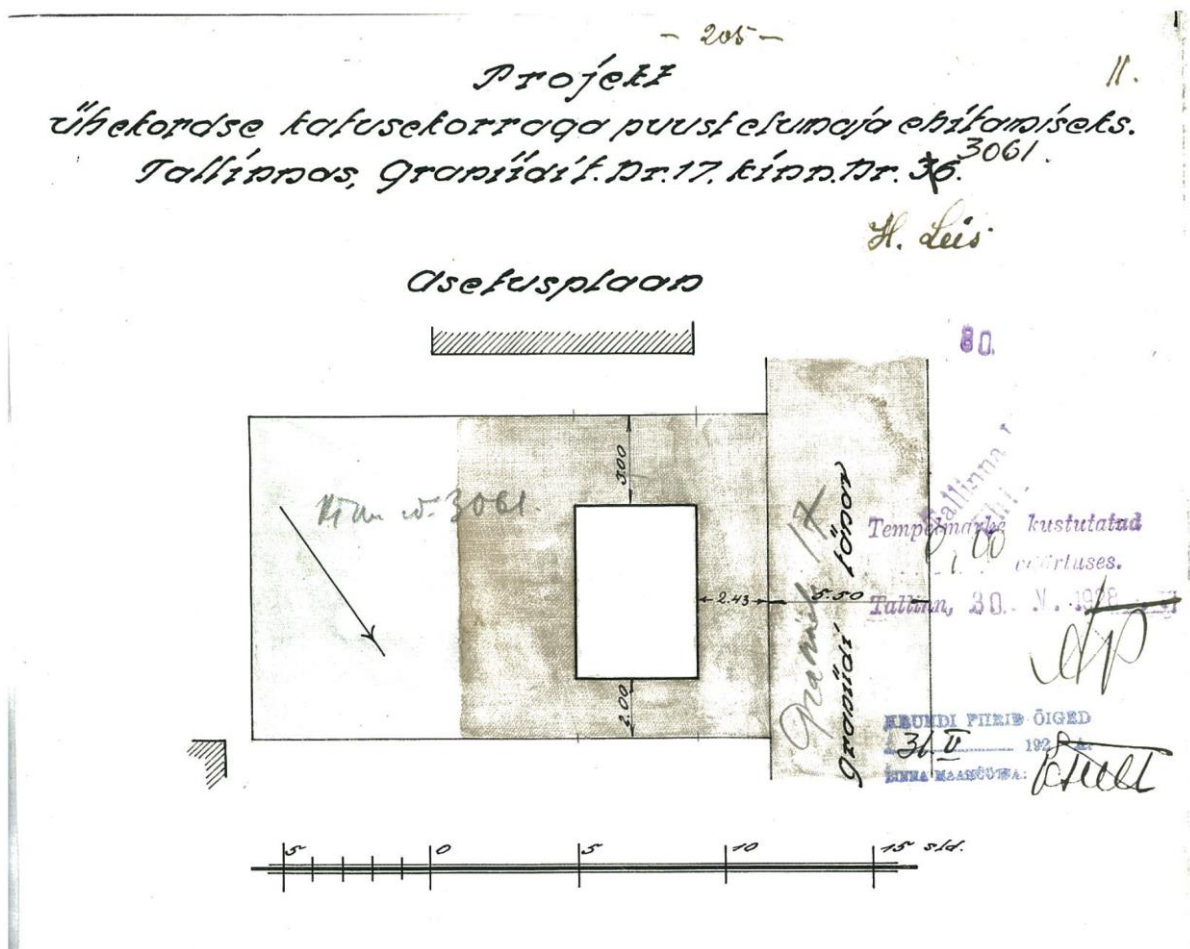 - 205 -
11.
Projekt
ühekordse katusekorraga puust elumaja ehitamiseks.
Tallinnas, Graniidi t. Nr. 17. kinn. Nr. 36. 3061.
H. Leis
Asetusplaan
80.
3.00
Kinn. 3061.
2.43
5.50
2.00
Graniidi 17
Graniidi tänav
Tallinna
Tempelmarke kustutatud
1.00 väärtuses.
Tallinn, 30. V. 1928
KRUNDI PIIRID ÕIGED
31. V 1928 A.
LINNA MAAMÕÕTJA:
5 0 5 10 15 sld.